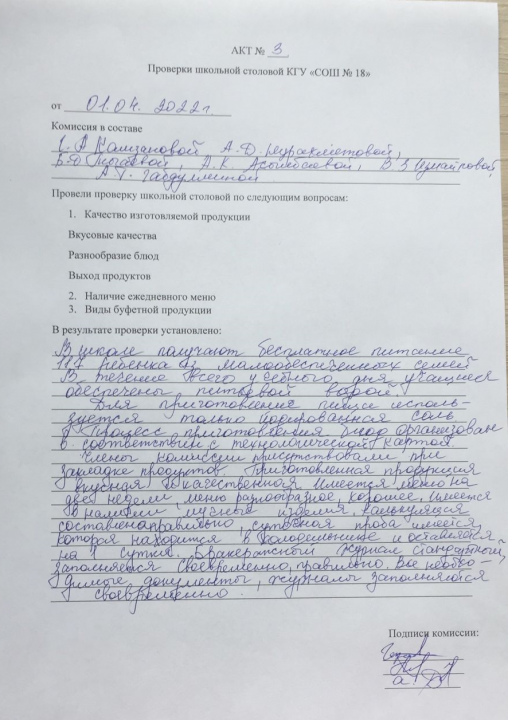 АКТ № 3
Проверки школьной столовой КГУ «СОШ № 18»
от 01.04. 2022г.
Комиссия в составе
А.Д. Нурахметовой,
А.К. Асылбековой, В.З
А.Т. Габдуллиной
Провели проверку школьной столовой по следующим вопросам:
1. Качество изготовляемой продукции
Вкусовые качества
Разнообразие блюд
Выход продуктов
2. Наличие ежедневного меню
3. Виды буфетной продукции
В результате проверки установлено:
В школе получают бесплатное питание
117 ребенка из малообеспеченных семей
В течение всего учебного дня учащиеся
обеспечены питьевой водой.
Для приготовления пищи исполь-
зуется только йодированная соль
Процесс приготовления блюд организован
в соответствии с технологической картой
Члены комиссии присутствовали при
закладке продуктов. Приготовленная продукция
вкусная и качественная. Имеется меню на
две недели, меню разнообразное, хорошее. Имеется
в наличии мучные изделия, калькуляция
составлена правильно, суточная проба имеется,
которая находится в холодильнике и оставляется
на 1 сутки. Бракеражный журнал стандартный,
заполняется своевременно, правильно. Все необхо-
димые документы, журналы заполняются
своевременно.
Подписи комиссии: